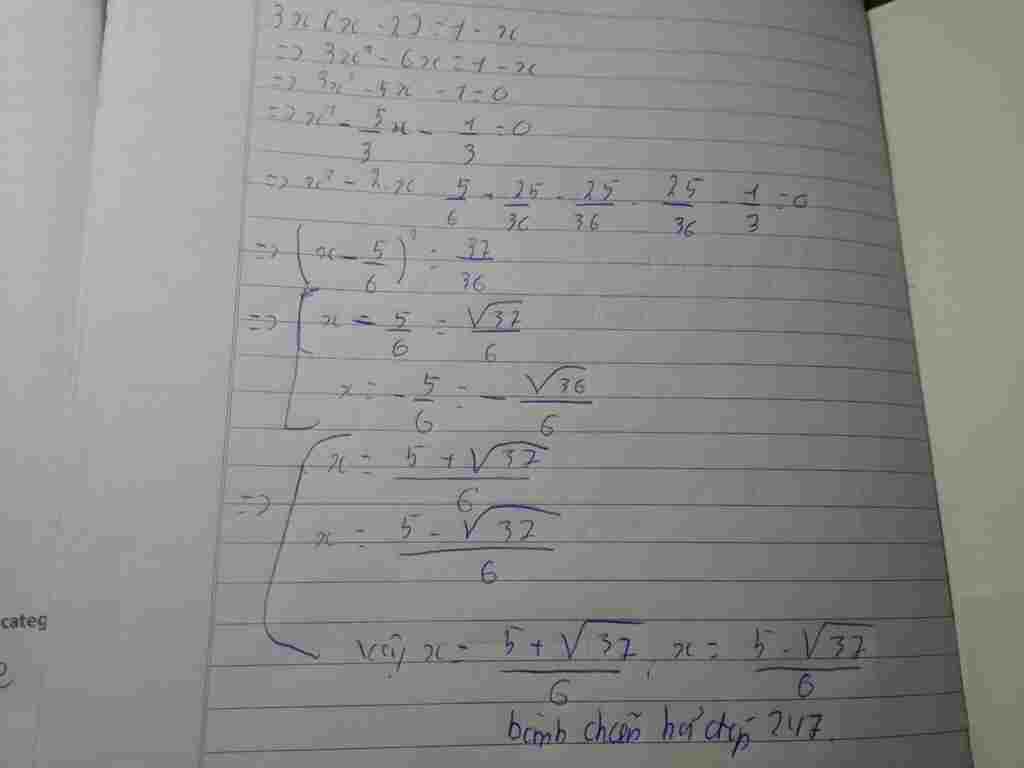 3x(x - 2) = 1 - x
=> 3x² - 6x = 1 - x
=> 3x² - 5x - 1 = 0
=> x² - 5/3 x - 1/3 = 0
=> x² - 2.x 5/6 + 25/36 - 25/36 - 25/36 - 1/3 = 0
=> (x - 5/6)² = 37/36
=> [ x - 5/6 = √37/6
x = - 5/6 = - √36/6
=> [ x = (5 + √37)/6
x = (5 - √37)/6
Vậy x = (5 + √37)/6, x = (5 - √37)/6
247.
categ